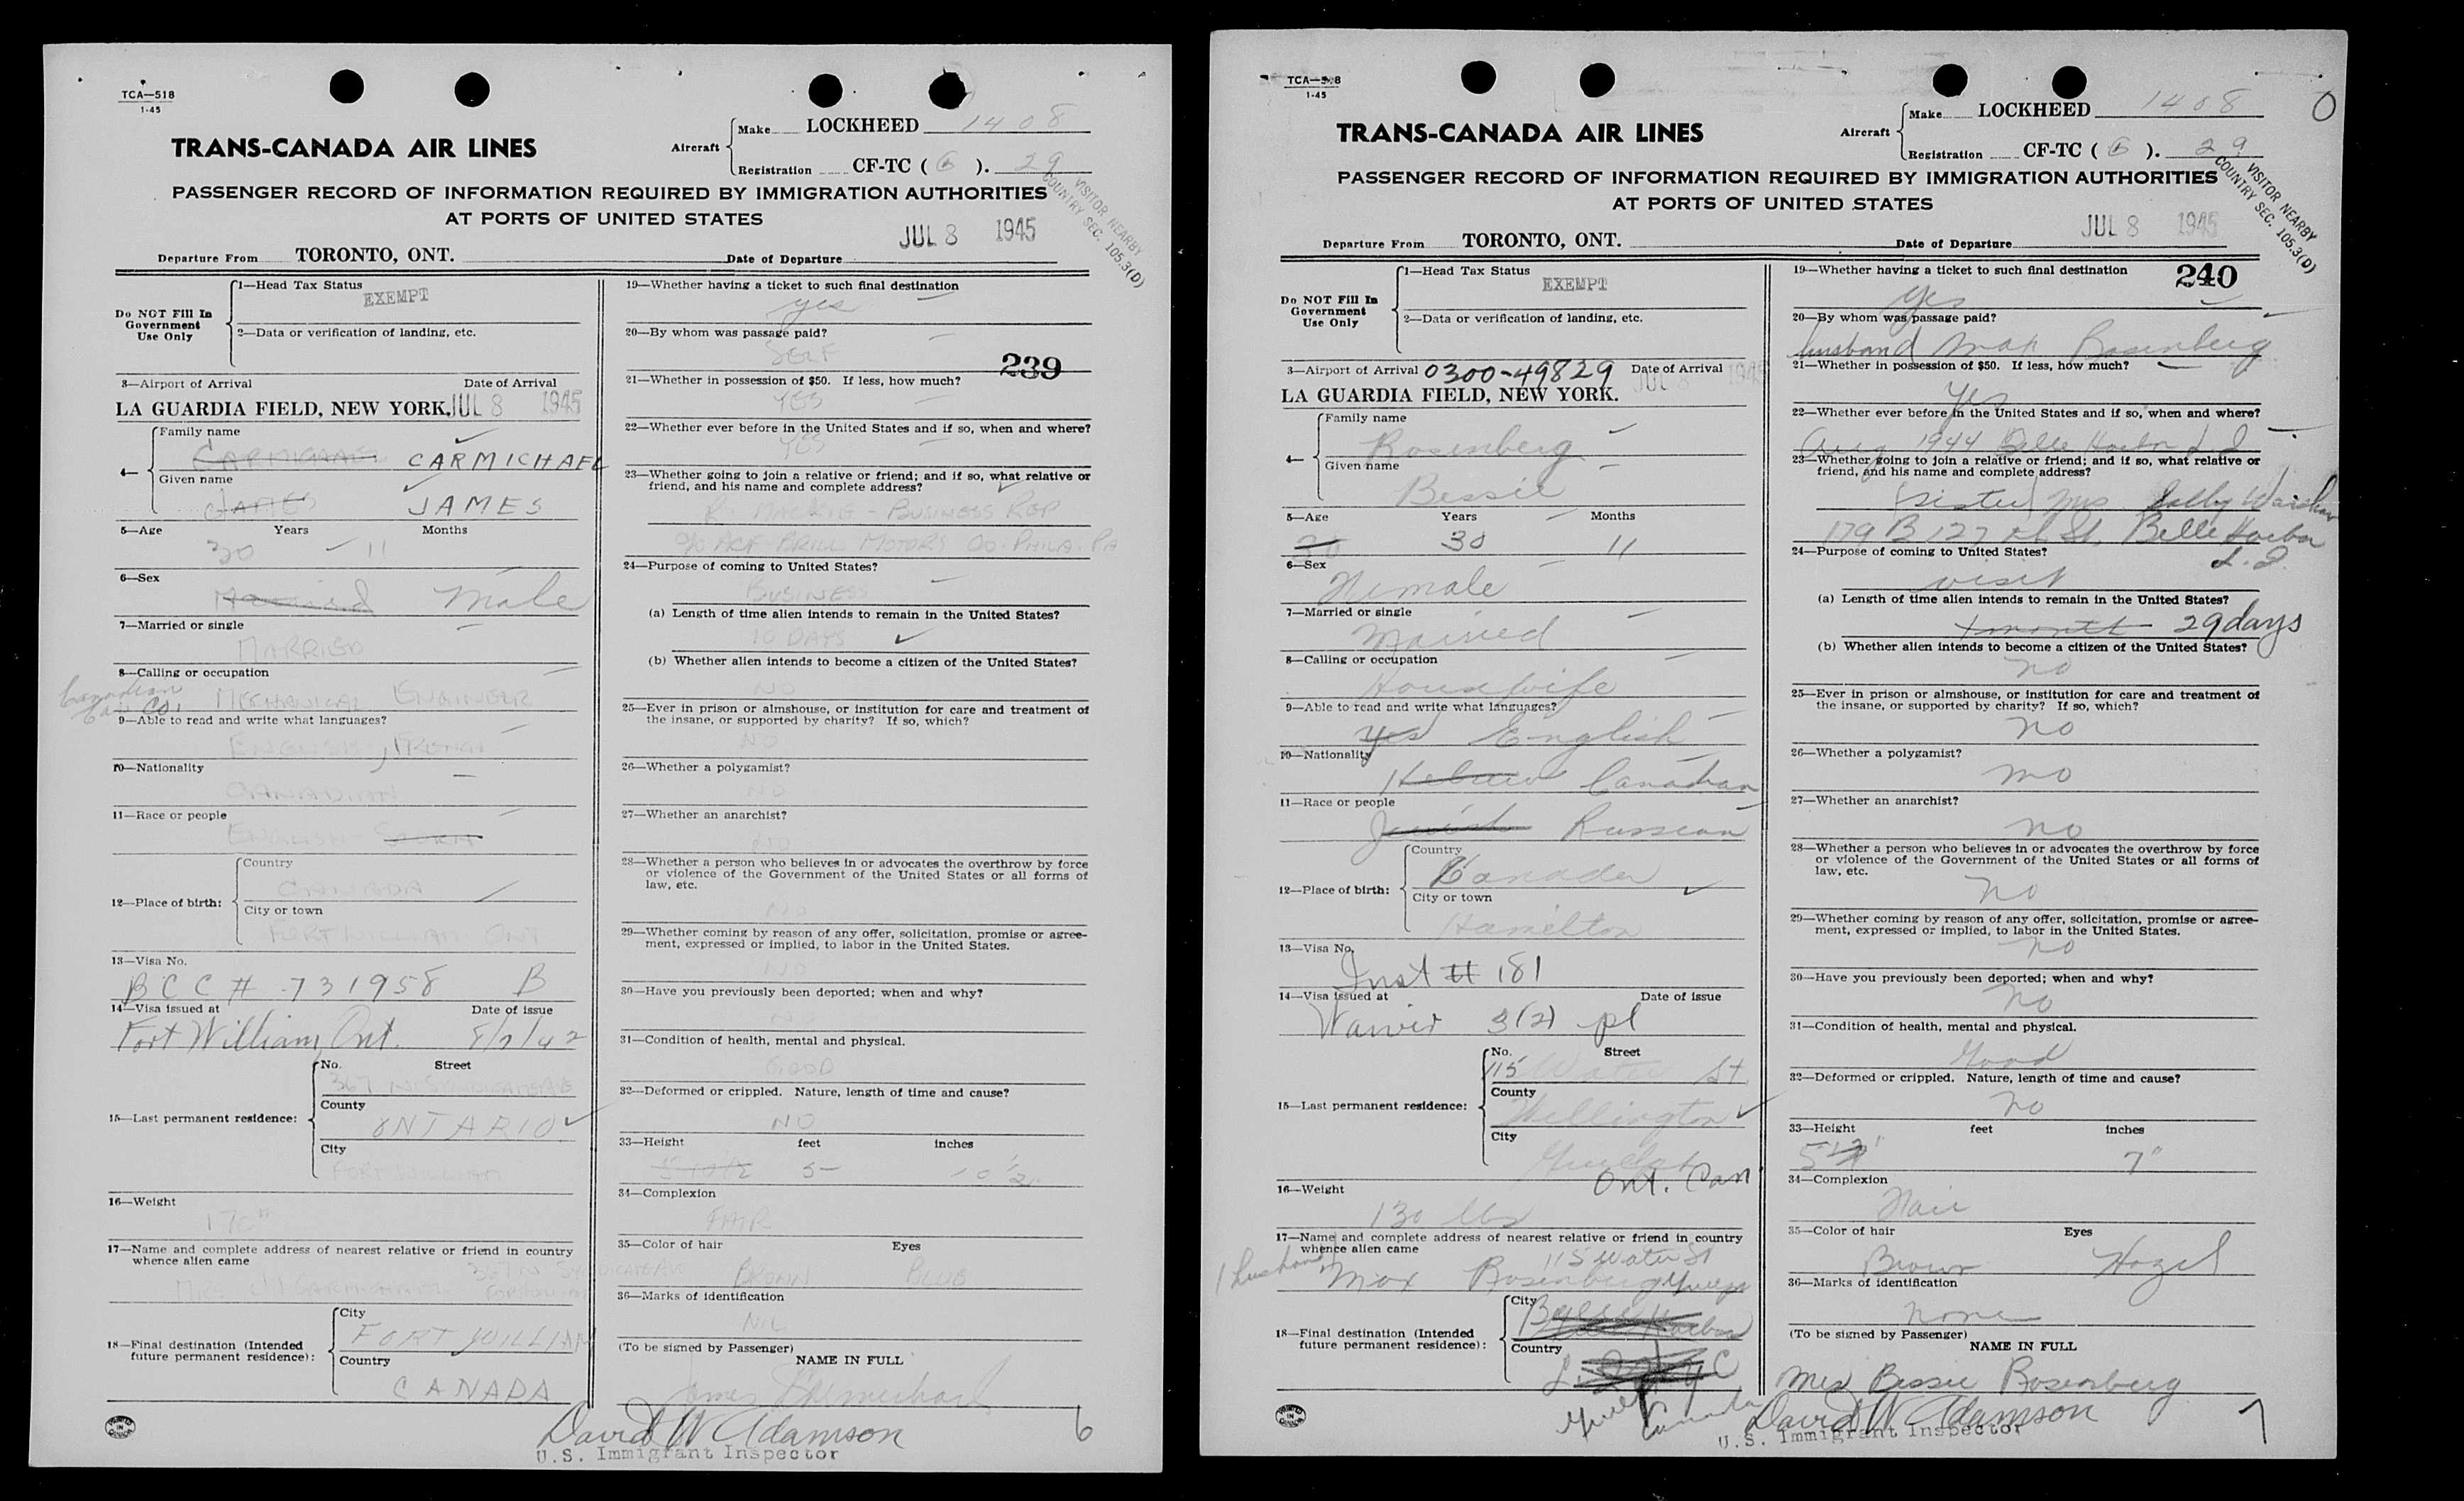 TCA—518
1-45
TRANS-CANADA AIR LINES
Aircraft
Make LOCKHEED 1408
Registration CF-TC ( G ). 29
PASSENGER RECORD OF INFORMATION REQUIRED BY IMMIGRATION AUTHORITIES
AT PORTS OF UNITED STATES
VISITOR NEARBY
COUNTRY SEC. 105.3(D)
JUL 8 1945
Departure From TORONTO, ONT. Date of Departure
Do NOT Fill In
Government
Use Only
1—Head Tax Status
EXEMPT
2—Data or verification of landing, etc.
3—Airport of Arrival Date of Arrival
LA GUARDIA FIELD, NEW YORK. JUL 8 1945
4—
Family name
CARMICHAEL CARMICHAEL
Given name
JAMES JAMES
5—Age Years Months
30 11
6—Sex
Married Male
7—Married or single
MARRIED
8—Calling or occupation
Canadian
Car Co. MECHANICAL ENGINEER
9—Able to read and write what languages?
ENGLISH, FRENCH
10—Nationality
CANADIAN
11—Race or people
ENGLISH
12—Place of birth:
Country
CANADA
City or town
FORT WILLIAM ONT
13—Visa No.
BCC # 731958 B
14—Visa issued at Date of issue
Fort William, Ont. 8/7/42
15—Last permanent residence:
No. Street
367 N. SYNDICATE AVE
County
ONTARIO
City
FORT WILLIAM
16—Weight
170#
17—Name and complete address of nearest relative or friend in country
whence alien came
367 N SYNDICATE AVE
MRS CARMICHAEL
18—Final destination (Intended
future permanent residence):
City
FORT WILLIAM
Country
CANADA
PRINTED IN CANADA
19—Whether having a ticket to such final destination
yes
20—By whom was passage paid?
SELF
239
21—Whether in possession of $50. If less, how much?
YES
22—Whether ever before in the United States and if so, when and where?
YES
23—Whether going to join a relative or friend; and if so, what relative or
friend, and his name and complete address?
- BUSINESS REP
c/o ACF BRILL MOTORS CO. PHILA. PA
24—Purpose of coming to United States?
BUSINESS
(a) Length of time alien intends to remain in the United States?
10 DAYS
(b) Whether alien intends to become a citizen of the United States?
NO
25—Ever in prison or almshouse, or institution for care and treatment of
the insane, or supported by charity? If so, which?
NO
26—Whether a polygamist?
NO
27—Whether an anarchist?
NO
28—Whether a person who believes in or advocates the overthrow by force
or violence of the Government of the United States or all forms of
law, etc.
NO
29—Whether coming by reason of any offer, solicitation, promise or agree-
ment, expressed or implied, to labor in the United States.
NO
30—Have you previously been deported; when and why?
NO
31—Condition of health, mental and physical.
GOOD
32—Deformed or crippled. Nature, length of time and cause?
NO
33—Height feet inches
5 10 1/2
34—Complexion
FAIR
35—Color of hair Eyes
BROWN BLUE
36—Marks of identification
NIL
(To be signed by Passenger)
NAME IN FULL
James Carmichael
David W Adamson
U.S. Immigrant Inspector
6
TCA—518
1-45
TRANS-CANADA AIR LINES
Aircraft
Make LOCKHEED 1408
Registration CF-TC ( G ). 29
0
PASSENGER RECORD OF INFORMATION REQUIRED BY IMMIGRATION AUTHORITIES
AT PORTS OF UNITED STATES
VISITOR NEARBY
COUNTRY SEC. 105.3(D)
JUL 8 1945
Departure From TORONTO, ONT. Date of Departure
Do NOT Fill In
Government
Use Only
1—Head Tax Status
EXEMPT
2—Data or verification of landing, etc.
3—Airport of Arrival 0300-49829 Date of Arrival
JUL 8 1945
LA GUARDIA FIELD, NEW YORK.
4—
Family name
Rosenberg
Given name
Bessie
5—Age Years Months
30 30 11
6—Sex
Female
7—Married or single
Married
8—Calling or occupation
Housewife
9—Able to read and write what languages?
yes English
10—Nationality
Hebrew Canadian
11—Race or people
Jewish Russian
12—Place of birth:
Country
Canada
City or town
Hamilton
13—Visa No.
Inst # 181
14—Visa issued at Date of issue
Waiver 3(2) pl
15—Last permanent residence:
No. Street
115 Water St
County
Wellington
City
Guelph
Ont. Can
16—Weight
130 lbs
17—Name and complete address of nearest relative or friend in country
whence alien came
115 Water St
(husband) Max Rosenberg Guelph
18—Final destination (Intended
future permanent residence):
City
Belle Harbor
Country
Guelph Canada
PRINTED IN CANADA
19—Whether having a ticket to such final destination
240
yes
20—By whom was passage paid?
husband Max Rosenberg
21—Whether in possession of $50. If less, how much?
Yes
22—Whether ever before in the United States and if so, when and where?
Aug 1944 Belle Harbor L.I.
23—Whether going to join a relative or friend; and if so, what relative or
friend, and his name and complete address?
(sister) Mrs Sally Warshaw
179 B 127th St. Belle Harbor
L.I.
24—Purpose of coming to United States?
visit
(a) Length of time alien intends to remain in the United States?
1 month 29 days
(b) Whether alien intends to become a citizen of the United States?
no
25—Ever in prison or almshouse, or institution for care and treatment of
the insane, or supported by charity? If so, which?
no
26—Whether a polygamist?
no
27—Whether an anarchist?
no
28—Whether a person who believes in or advocates the overthrow by force
or violence of the Government of the United States or all forms of
law, etc.
no
29—Whether coming by reason of any offer, solicitation, promise or agree-
ment, expressed or implied, to labor in the United States.
no
30—Have you previously been deported; when and why?
no
31—Condition of health, mental and physical.
Good
32—Deformed or crippled. Nature, length of time and cause?
no
33—Height feet inches
5 7"
34—Complexion
Fair
35—Color of hair Eyes
Brown Hazel
36—Marks of identification
none
(To be signed by Passenger)
NAME IN FULL
Mrs Bessie Rosenberg
David W Adamson
U.S. Immigrant Inspector
7